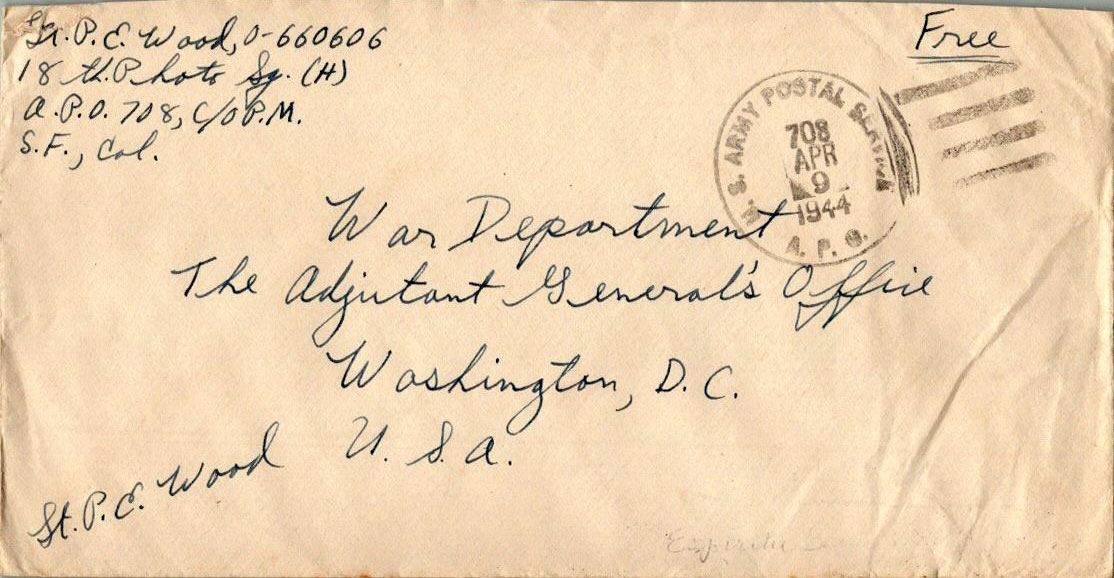 Lt. P. E. Wood, O-660606
18th Photo Sq. (H)
A.P.O. 708, C/O P.M.
S.F., Cal.
Free
U. S. ARMY POSTAL SERVICE
708
APR
9
1944
A. P. O.
War Department
The Adjutant General's Office
Washington, D.C.
U. S. A.
Lt. P. E. Wood
Espiritu